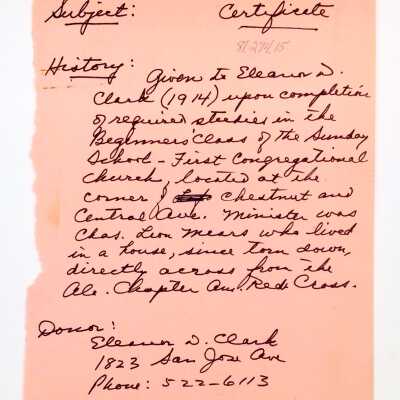 Subject: Certificate
81.274.15
History: Given to Eleanor D.
Clark (1914) upon completion
of required studies in the
Beginners' Class of the Sunday
School - First Congregational
Church, located at the
corner of Chestnut and
Central Ave. Minister was
Chas. Leon Mears who lived
in a house, since torn down,
directly across from the
Ala. Chapter Am. Red Cross.
Donor:
Eleanor D. Clark
1823 San Jose Ave
Phone: 522-6113